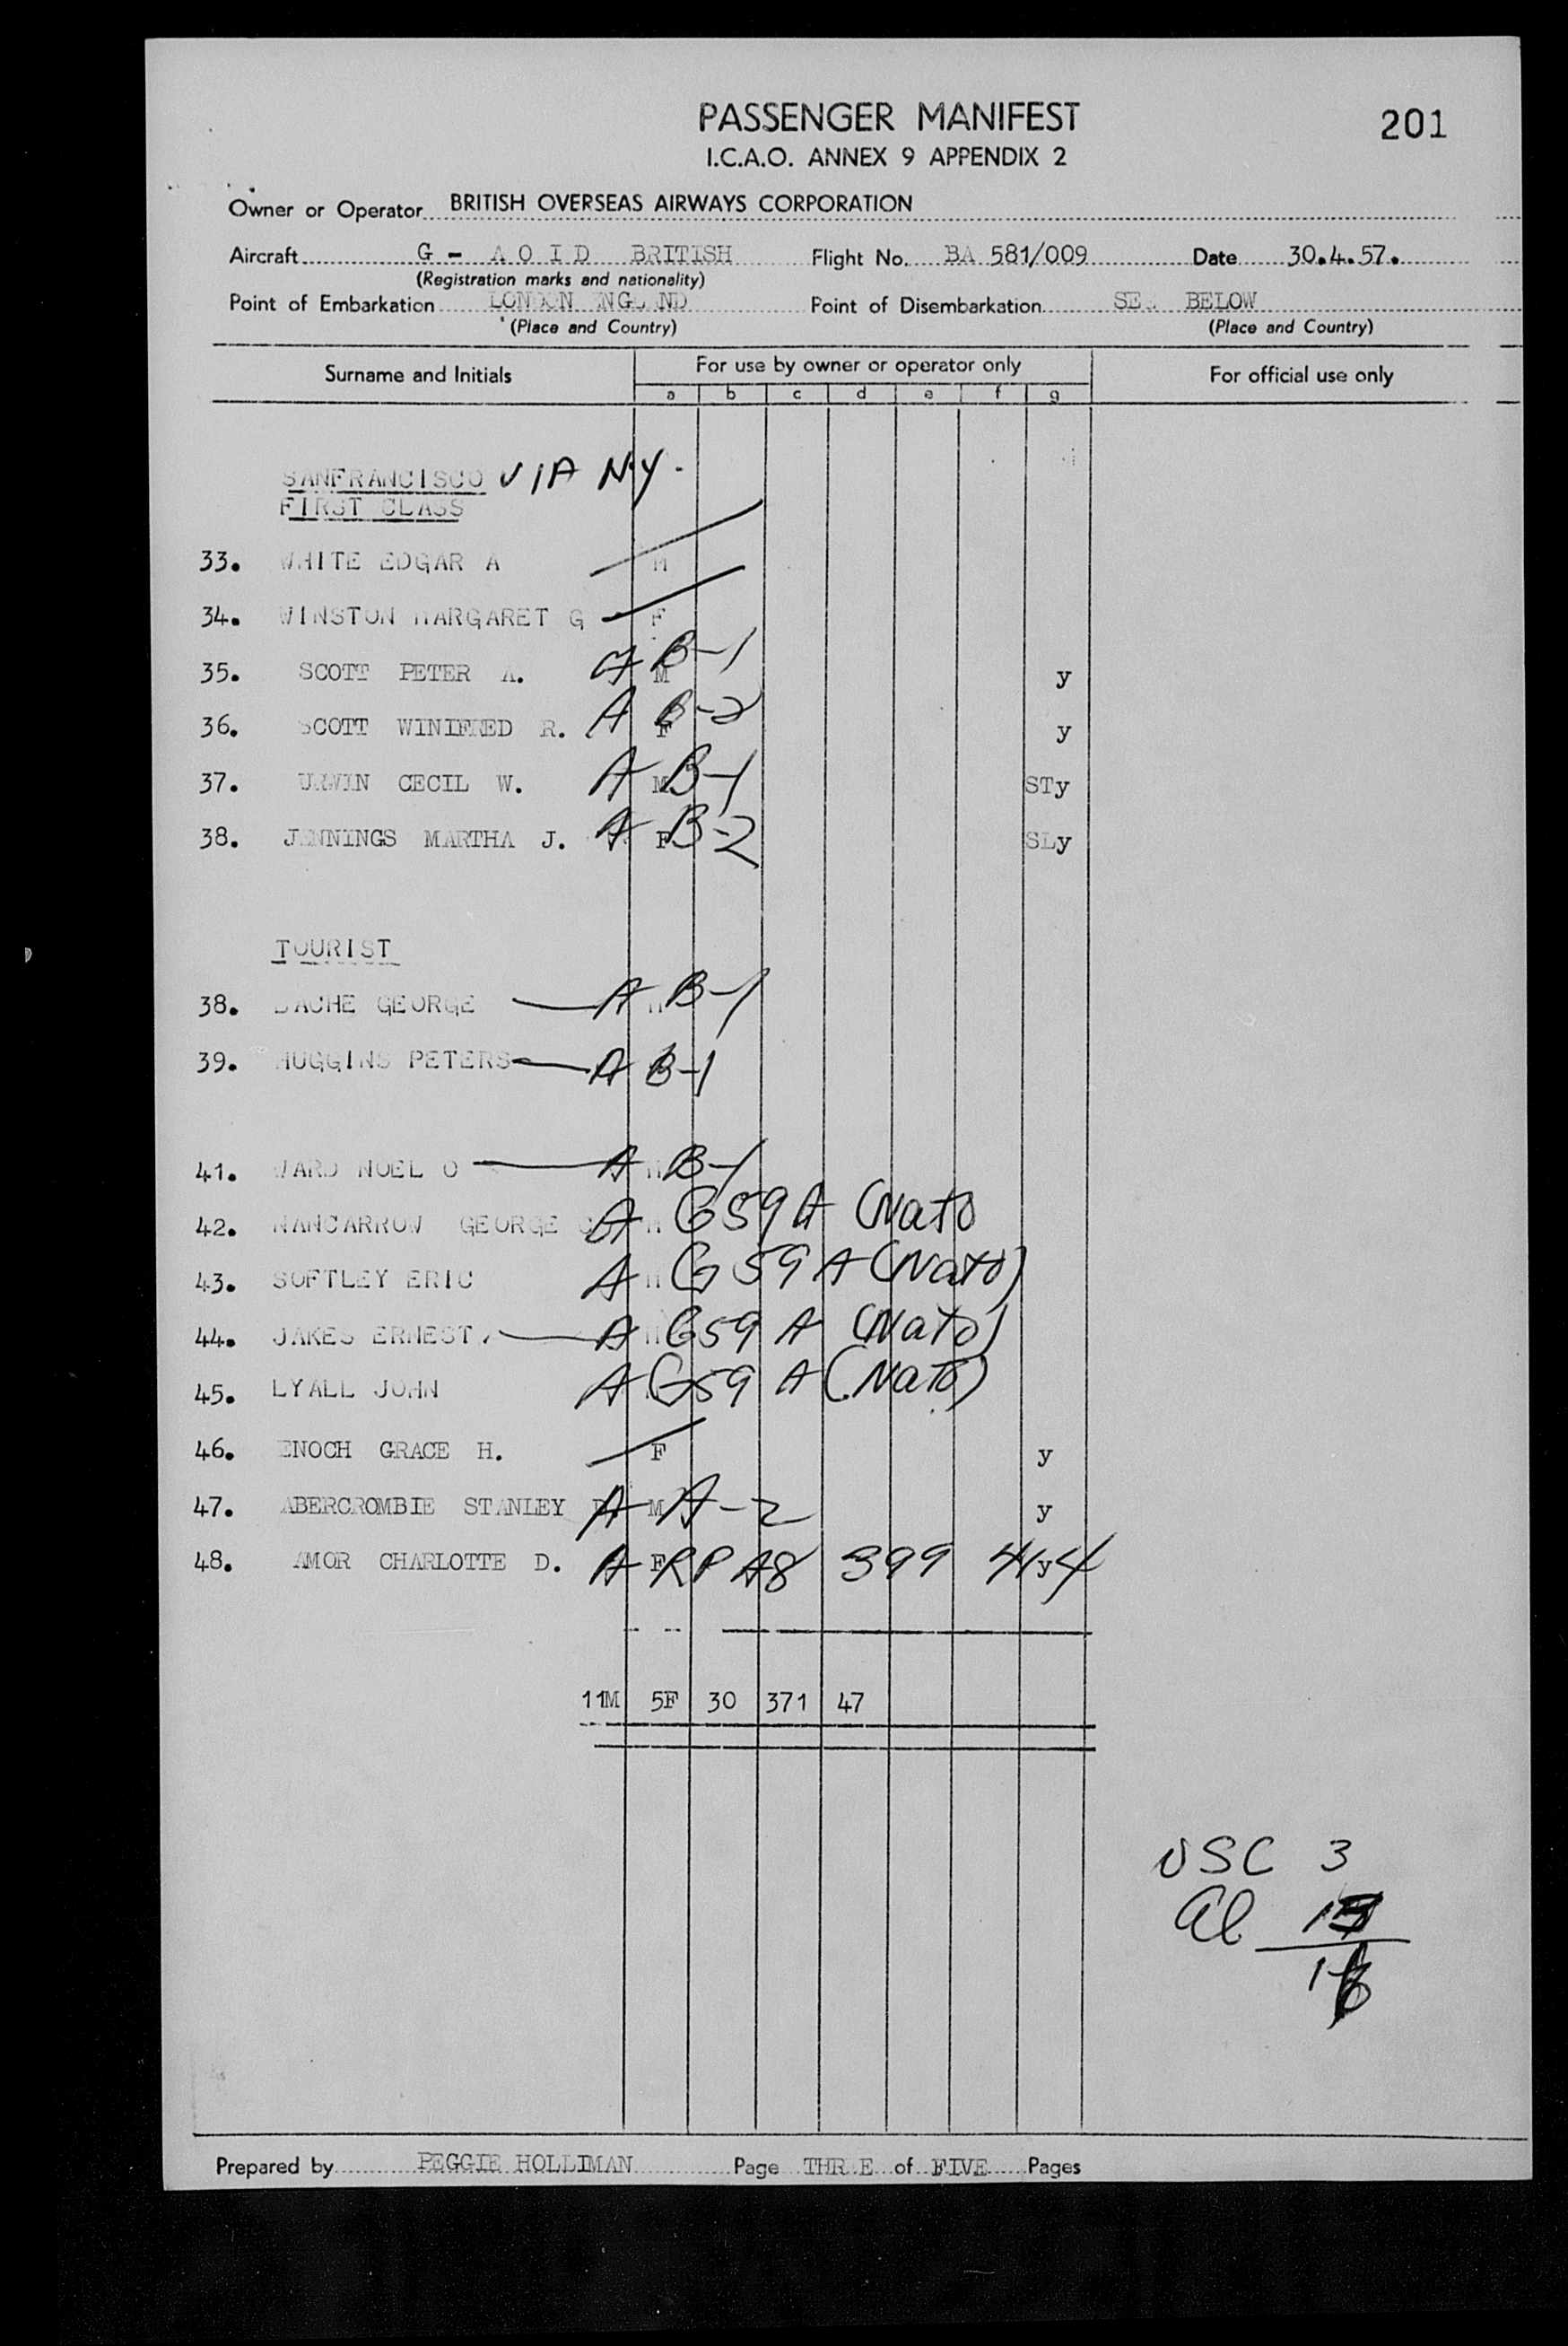 PASSENGER MANIFEST
201
I.C.A.O. ANNEX 9 APPENDIX 2
Owner or Operator BRITISH OVERSEAS AIRWAYS CORPORATION
Aircraft G - A O I D BRITISH Flight No. BA 581/009 Date 30.4.57.
(Registration marks and nationality)
Point of Embarkation LONDON ENGLAND Point of Disembarkation SEE BELOW
(Place and Country) (Place and Country)
Surname and Initials For use by owner or operator only For official use only
a b c d e f g
SANFRANCISCO VIA N.Y.
FIRST CLASS
33. WHITE EDGAR A M
34. WINSTON MARGARET G F
35. SCOTT PETER A. A M B-1 y
36. SCOTT WINIFRED R. A F B-2 y
37. URWIN CECIL W. A M B-1 STy
38. JENNINGS MARTHA J. A F B-2 SLy
TOURIST
38. BACHE GEORGE A M B-1
39. HUGGINS PETERS A B-1
41. WARD NOEL O A M B-1
42. NANCARROW GEORGE A M G59A (Nato
43. SOFTLEY ERIC A M G59A (Nato)
44. JAKES ERNEST A M G59 A (Nato)
45. LYALL JOHN A G59 A (Nato)
46. ENOCH GRACE H. F y
47. ABERCROMBIE STANLEY A M A-2 y
48. AMOR CHARLOTTE D. A F RP A8 399 414 y
11M 5F 30 371 47
USC 3
Al
Prepared by PEGGIE HOLLIMAN Page THREE of FIVE Pages